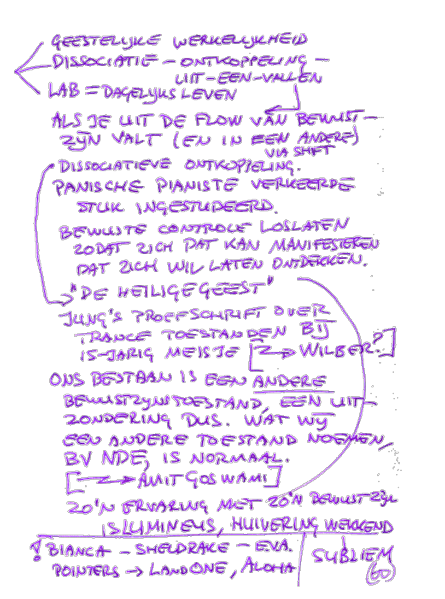 GEESTELIJKE WERKELIJKHEID
DISSOCIATIE - ONTKOPPELING -
UIT-EEN-VALLEN
LAB = DAGELIJKS LEVEN
ALS JE UIT DE FLOW VAN BEWUST-
ZIJN VALT (EN IN EEN ANDERE)
VIA SHIFT
DISSOCIATIEVE ONTKOPPELING.
PANISCHE PIANISTE VERKEERDE
STUK INGESTUDEERD.
BEWUSTE CONTROLE LOSLATEN
ZODAT ZICH DAT KAN MANIFESTEREN
DAT ZICH WIL LATEN ONTDEKKEN.
"DE HEILIGE GEEST"
JUNG'S PROEFSCHRIFT OVER
TRANCE TOESTANDEN BIJ
15-JARIG MEISJE [→ WILBER?]
ONS BESTAAN IS EEN ANDERE
BEWUSTZIJNSTOESTAND, EEN UIT-
ZONDERING DUS. WAT WIJ
EEN ANDERE TOESTAND NOEMEN,
BV NDE, IS NORMAAL.
[→ AMIT GOSWAMI]
ZO'N ERVARING MET ZO'N BEWUSTZIJN
IS LUMINEUS, HUIVERINGWEKKEND
! BIANCA - SHELDRAKE - EVA.
SUBLIEM
POINTERS → LANDONE, ALOHA
60